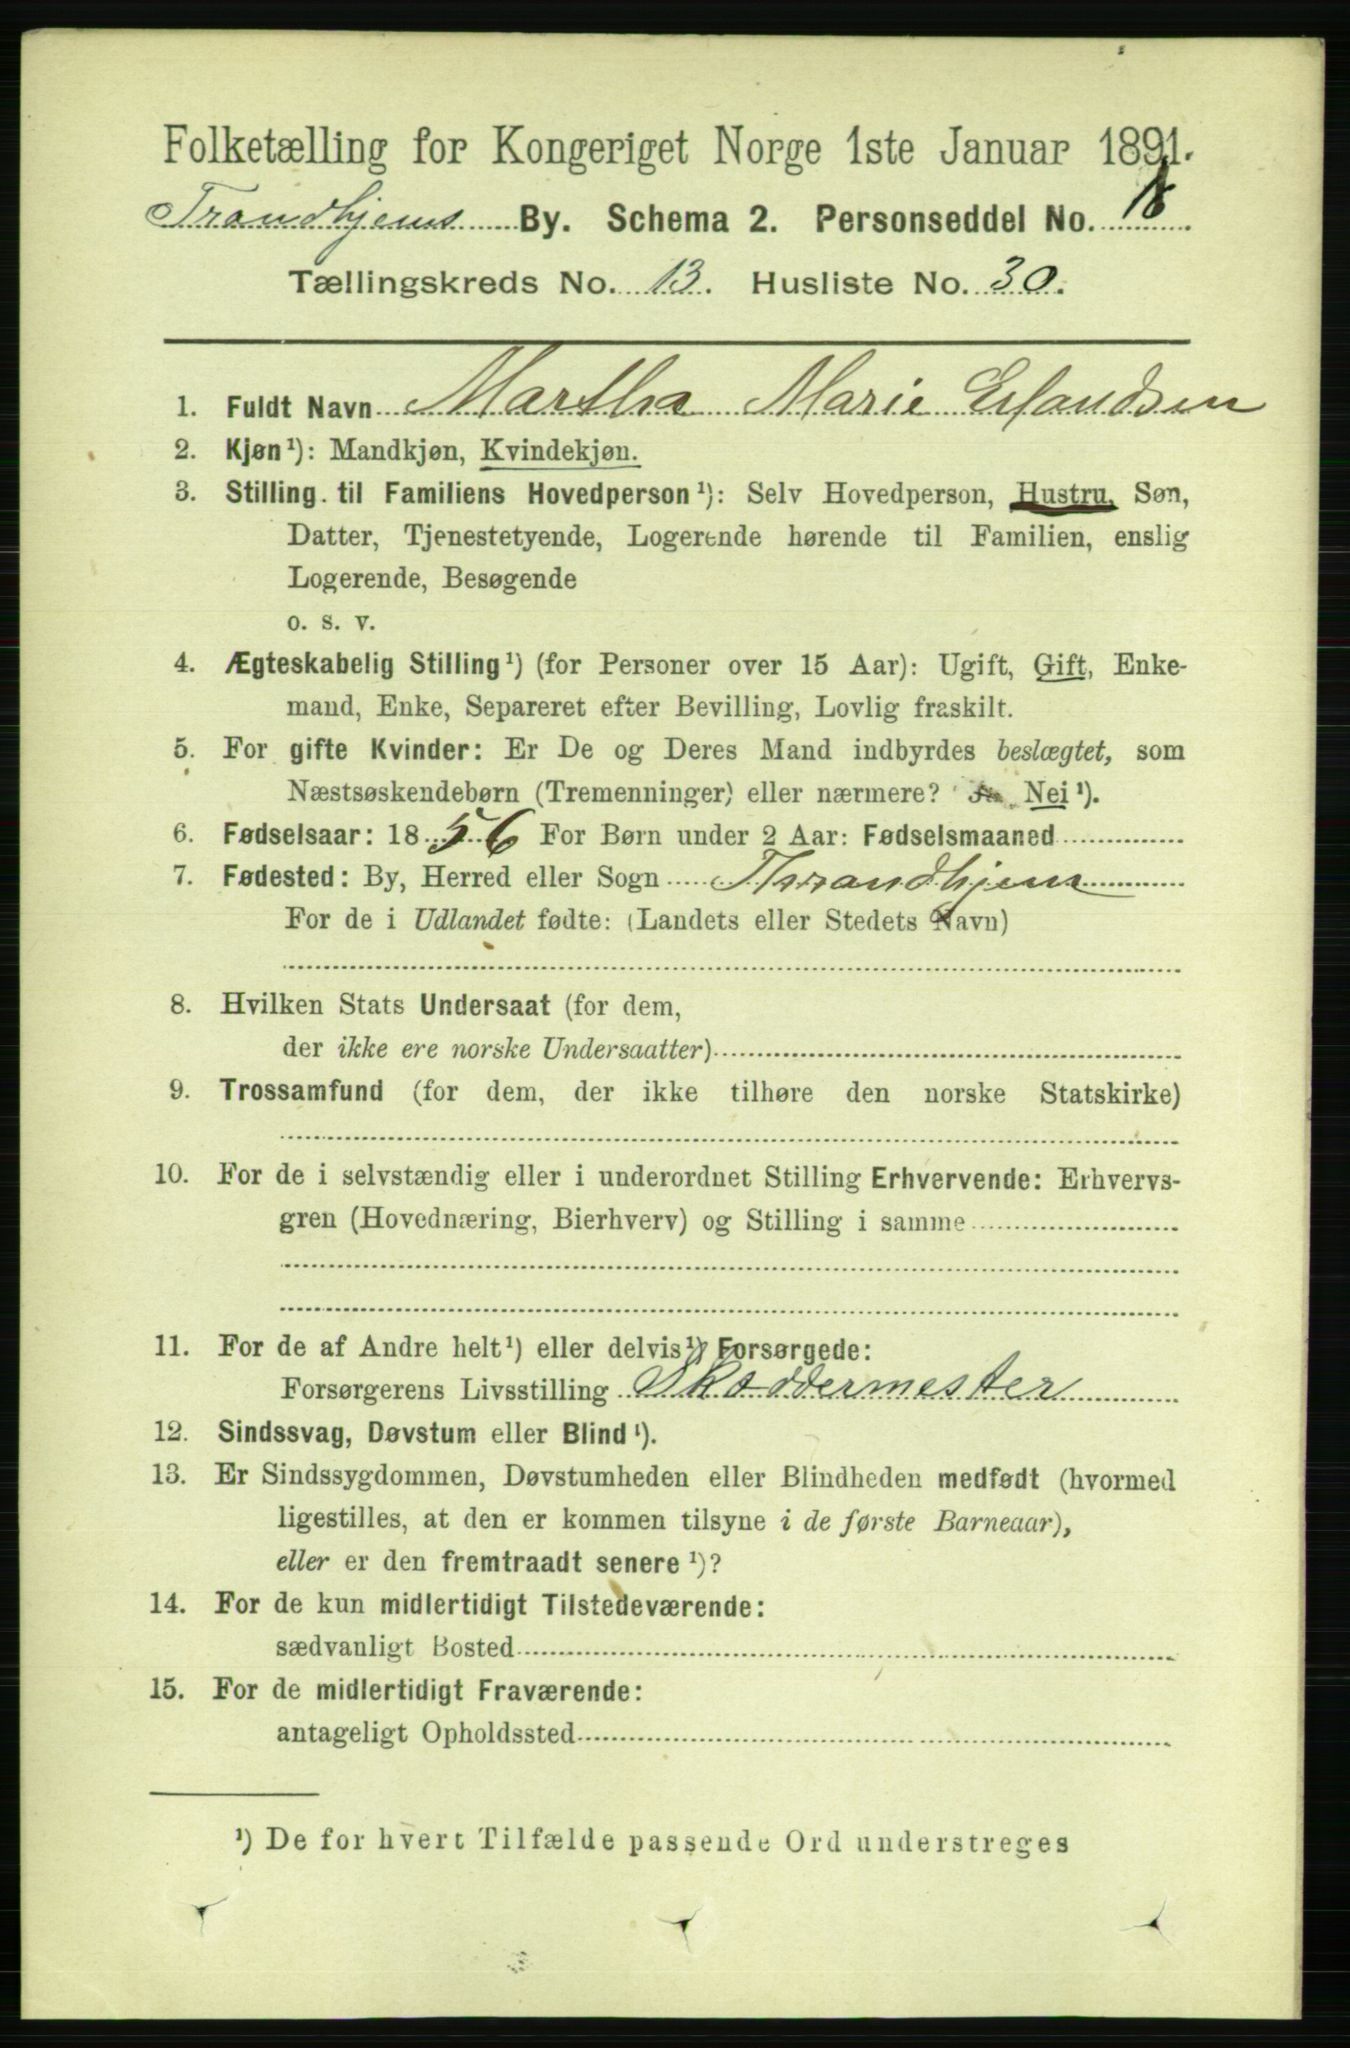 Folketælling for Kongeriget Norge 1ste Januar 1891.
Trondhjems By. Schema 2. Personseddel No.
Tællingskreds No. 13. Husliste No. 30.
1. Fuldt Navn Martha Marie Erlandsen
2. Kjøn¹): Mandkjøn, Kvindekjøn.
3. Stilling til Familiens Hovedperson¹): Selv Hovedperson, Hustru, Søn,
Datter, Tjenestetyende, Logerende hørende til Familien, enslig
Logerende, Besøgende
o. s. v.
4. Ægteskabelig Stilling¹) (for Personer over 15 Aar): Ugift, Gift, Enke-
mand, Enke, Separeret efter Bevilling, Lovlig fraskilt.
5. For gifte Kvinder: Er De og Deres Mand indbyrdes beslægtet, som
Næstsøskendebørn (Tremenninger) eller nærmere? Ja, Nei¹).
6. Fødselsaar: 1856 For Børn under 2 Aar: Fødselsmaaned
7. Fødested: By, Herred eller Sogn Throndhjem
For de i Udlandet fødte: (Landets eller Stedets Navn)
8. Hvilken Stats Undersaat (for dem,
der ikke ere norske Undersaatter)
9. Trossamfund (for dem, der ikke tilhøre den norske Statskirke)
10. For de i selvstændig eller i underordnet Stilling Erhvervende: Erhvervs-
gren (Hovednæring, Bierhverv) og Stilling i samme
11. For de af Andre helt¹) eller delvis¹) Forsørgede:
Forsørgerens Livsstilling Skræddermester
12. Sindssvag, Døvstum eller Blind¹).
13. Er Sindssygdommen, Døvstumheden eller Blindheden medfødt (hvormed
ligestilles, at den er kommen tilsyne i de første Barneaar),
eller er den fremtraadt senere¹)?
14. For de kun midlertidigt Tilstedeværende:
sædvanligt Bosted
15. For de midlertidigt Fraværende:
antageligt Opholdssted
¹) De for hvert Tilfælde passende Ord understreges